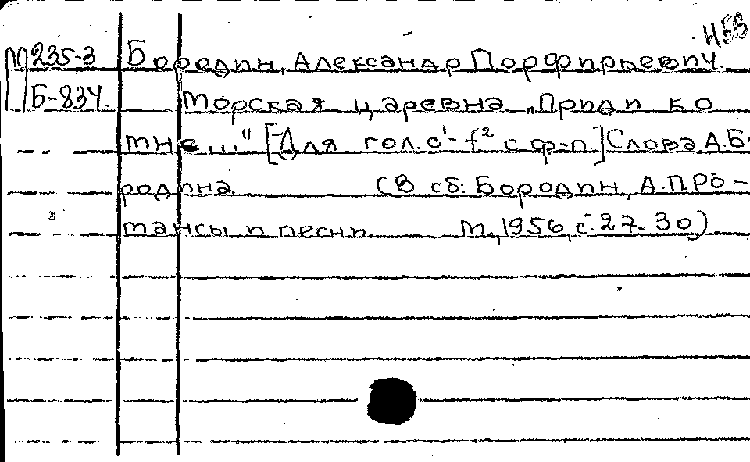 И55
М235-3 Бородин, Александр Порфирьевич
Б-834 Морская царевна „Приди ко
мне..." [Для гол. c'-f² с ф-п.] Слова А. Бо-
родина (В сб. Бородин, А.П. Ро-
мансы и песни. М., 1956, с. 27-30)